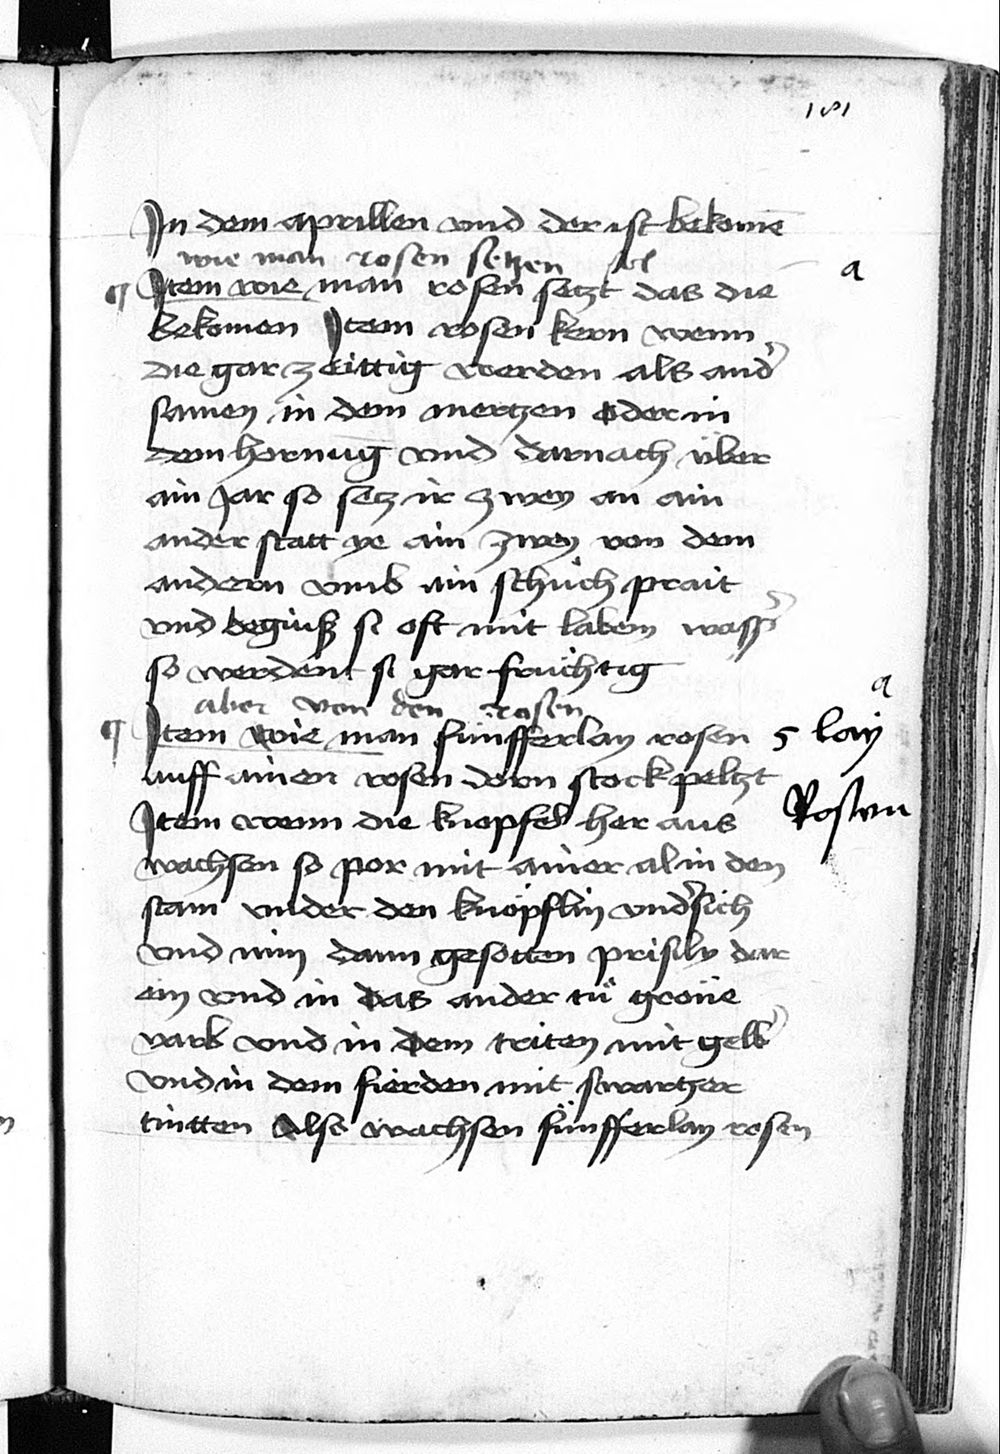 181
In dem aprillen vnd der ist bekome
wie man rosen setzen sol
a
Item wie man rosen setzt das die
bekomen Item rosen kern wenn
die gar zeittig werden als and
samen in dem mertzen oder in
dem hornug vnd darnach über
ain Jar so setz ir zwen an ain
ander statt ye ain zwen von dem
andern vmb ain schüch prait
vnd begiuß si oft mit labem wass
so werdent si gar fruchtig
a
aber von den rosen
Item wie man fünfferlay rosen
5 lay
auff ainen rosen dorn stock peltzt
Item wenn die knopfel her aus
Rosenn
wachsen so por mit ainer al in den
stam vnder den knöpflin vndsich
vnd nim dann gesotten prisily dar
ein vnd in das ander tü grone
varb vnd in dem triten mit gelb
vnd in dem fierden mit swartzer
tintten Also wachsen fünfferlay rosen